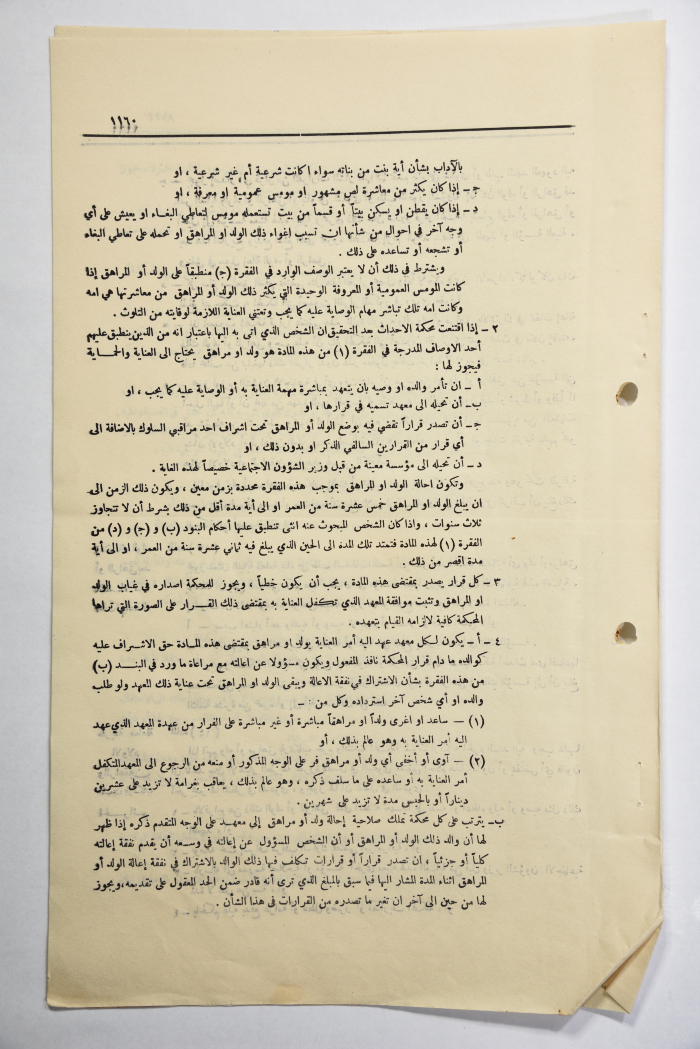 ١١٦٠
بالآداب بشأن أية بنت من بناته سواء اكانت شرعية أم غير شرعية ، او
جـ – إذا كان يكثر من معاشرة لص مشهور او مومس عمومية او معرفة ، او
د – إذا كان يقطن او يسكن بيتاً أو قسماً من بيت تستعمله مومس لتعاطي البغاء او يعيش على أي
وجه آخر في احوال من شأنها ان تسبب إغواء ذلك الولد او المراهق او تحمله على تعاطي البغاء
أو تشجعه أو تساعده على ذلك .
ويشترط في ذلك أن لا يعتبر الوصف الوارد في الفقرة (ج) منطبقاً على الولد أو المراهق إذا
كانت المومس العمومية أو المعروفة الوحيدة التي يكثر ذلك الولد أو المراهق من معاشرتها هي امه
وكانت امه تلك تباشر مهام الوصاية عليه كما يجب وتعتني العناية اللازمة لوقايته من التلوث .
٢ – إذا اقتنعت محكمة الاحداث بعد التحقيق ان الشخص الذي اتى به اليها باعتبار انه من الذين ينطبق عليهم
أحد الاوصاف المدرجة في الفقرة (١) من هذه المادة هو ولد او مراهق يحتاج الى العناية والحماية
فيجوز لها :
أ – ان تأمر والده او وصيه بان يتعهد بمباشرة مهمة العناية به أو الوصاية عليه كما يجب ، او
ب – أن تحيله الى معهد تسميه في قرارها ، او
جـ – أن تصدر قراراً تقضي فيه بوضع الولد أو المراهق تحت اشراف احد مراقبي السلوك بالاضافة الى
أي قرار من القرارين السالفي الذكر او بدون ذلك ، او
د – أن تحيله الى مؤسسة معينة من قبل وزير الشؤون الاجتماعية خصيصاً لهذه الغاية .
وتكون احالة الولد او المراهق بموجب هذه الفقرة محددة بزمن معين ، ويكون ذلك الزمن الى
ان يبلغ الولد او المراهق خمس عشرة سنة من العمر او الى أية مدة أقل من ذلك بشرط أن لا تتجاوز
ثلاث سنوات ، واذا كان الشخص المبحوث عنه انثى تنطبق عليها أحكام البنود (ب) و (ج) و (د) من
الفقرة (١) لهذه المادة فتمتد تلك المدة الى الحين الذي يبلغ فيه ثماني عشرة سنة من العمر ، او الى أية
مدة اقصر من ذلك .
٣ – كل قرار يصدر بمقتضى هذه المادة ، يجب أن يكون خطياً ، ويجوز للمحكمة اصداره في غياب الولد
او المراهق وتثبت موافقة المعهد الذي تكفل العناية به بمقتضى ذلك القرار على الصورة التي تراها
المحكمة كافية لالزامه القيام بتعهده .
٤ – أ – يكون لكل معهد عهد اليه أمر العناية بولد او مراهق بمقتضى هذه المادة حق الاشراف عليه
كوالده ما دام قرار المحكمة نافذ المفعول ويكون مسؤولا عن اعالته مع مراعاة ما ورد في البند (ب)
من هذه الفقرة بشأن الاشتراك في نفقة الاعالة ويبقى الولد او المراهق تحت عناية ذلك المعهد ولو طلب
والده او أي شخص آخر استرداده وكل من : –
(١) – ساعد او اغرى ولداً او مراهقاً مباشرة أو غير مباشرة على الفرار من عهدة المعهد الذي عهد
اليه أمر العناية به وهو عالم بذلك ، أو
(٢) – آوى أو أخفى أي ولد أو مراهق فر على الوجه المذكور أو منعه من الرجوع الى المعهد المتكفل
أمر العناية به أو ساعده على ما سلف ذكره ، وهو عالم بذلك ، يعاقب بغرامة لا تزيد على عشرين
ديناراً أو بالحبس مدة لا تزيد على شهرين .
ب – يترتب على كل محكمة تملك صلاحية إحالة ولد أو مراهق إلى معهد على الوجه المتقدم ذكره إذا ظهر
لها أن والد ذلك الولد أو المراهق أو أن الشخص المسؤول عن إعالته في وسعه أن يقدم نفقة إعالته
كلياً أو جزئياً ، ان تصدر قراراً أو قرارات تكلف فيها ذلك الوالد بالاشتراك في نفقة إعالة الولد أو
المراهق اثناء المدة المشار اليها فيما سبق بالمبلغ الذي ترى أنه قادر ضمن الحد المعقول على تقديمه ، ويجوز
لها من حين الى آخر ان تغير ما تصدره من القرارات في هذا الشأن .